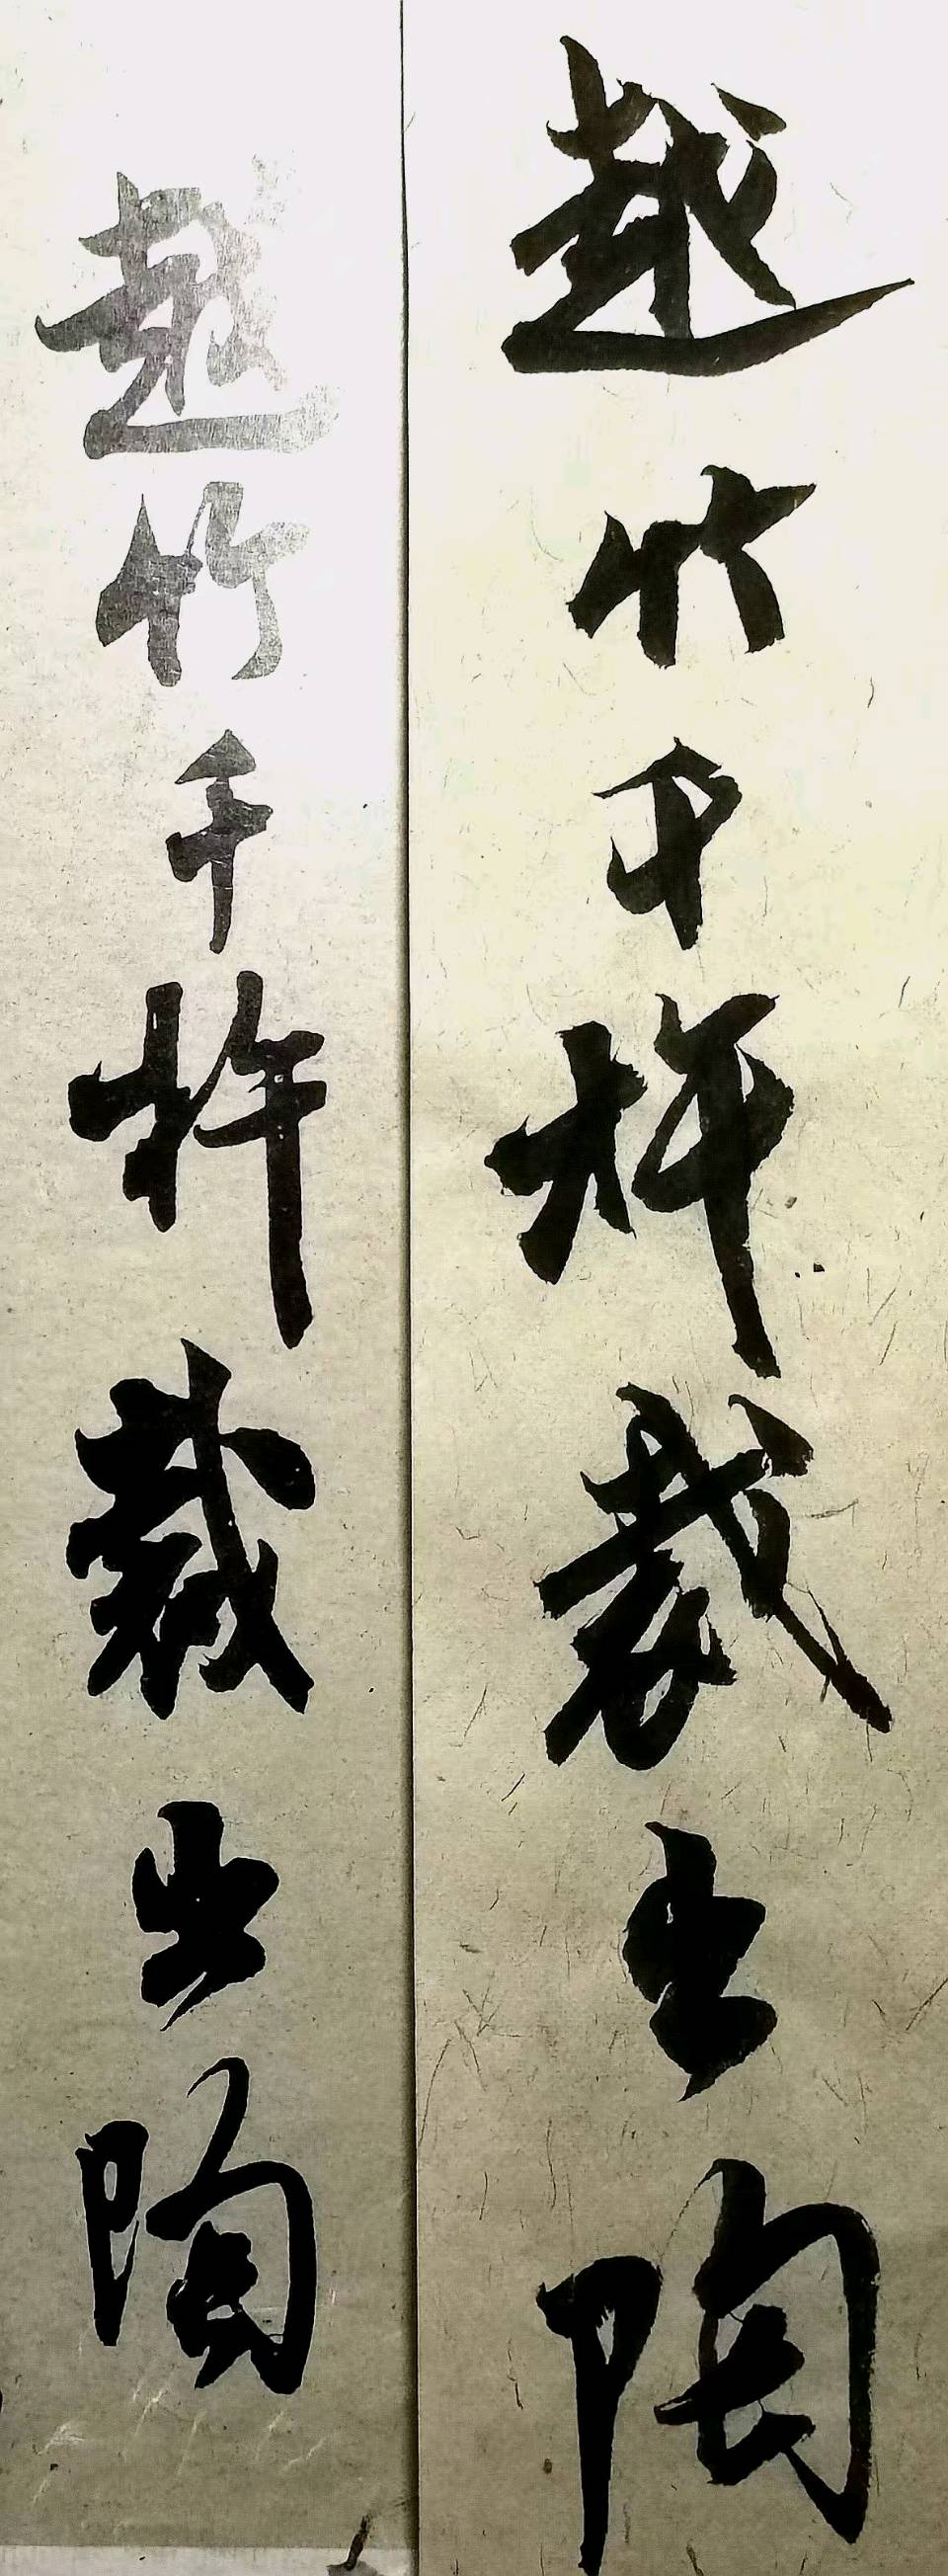 越竹千杵裁出陶
越竹千杵裁出陶